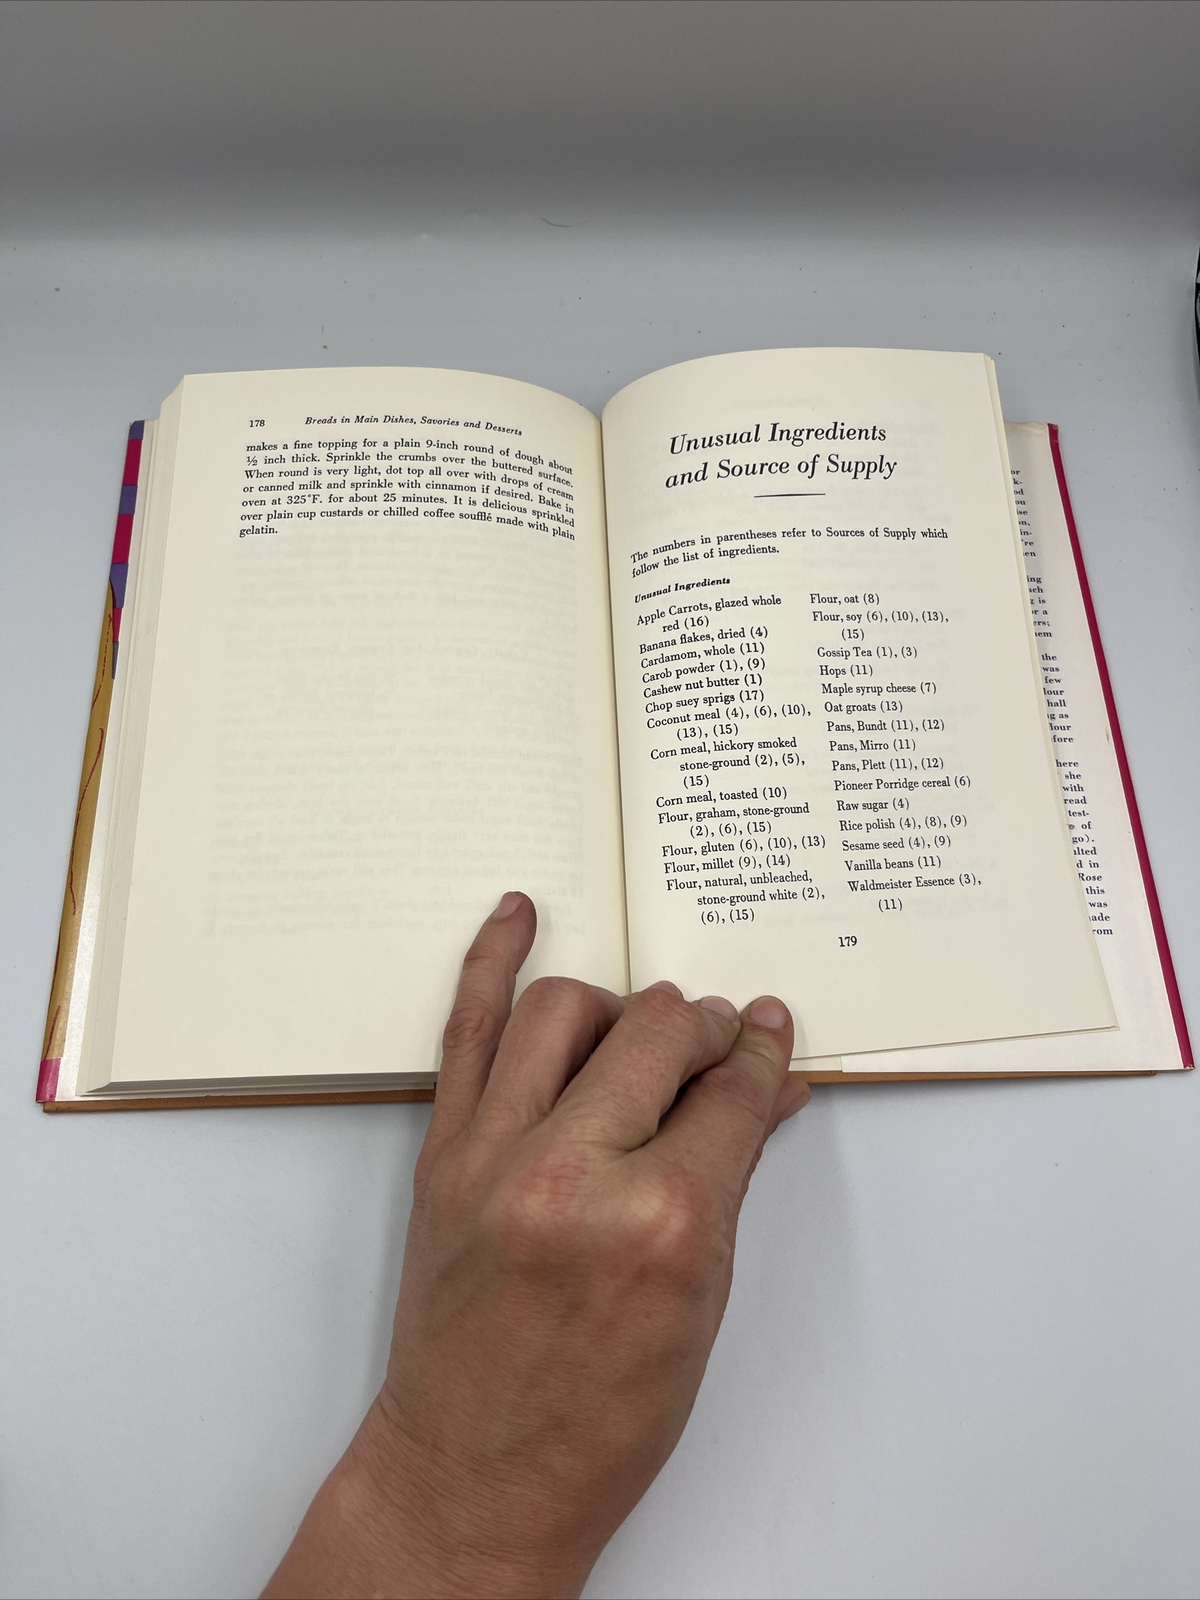 178 Breads in Main Dishes, Savories and Desserts
makes a fine topping for a plain 9-inch round of dough about
½ inch thick. Sprinkle the crumbs over the buttered surface.
When round is very light, dot top all over with drops of cream
or canned milk and sprinkle with cinnamon if desired. Bake in
oven at 325°F. for about 25 minutes. It is delicious sprinkled
over plain cup custards or chilled coffee soufflé made with plain
gelatin.
Unusual Ingredients
and Source of Supply
The numbers in parentheses refer to Sources of Supply which
follow the list of ingredients.
Unusual Ingredients
Apple Carrots, glazed whole
red (16)
Banana flakes, dried (4)
Cardamom, whole (11)
Carob powder (1), (9)
Cashew nut butter (1)
Chop suey sprigs (17)
Coconut meal (4), (6), (10),
(13), (15)
Corn meal, hickory smoked
stone-ground (2), (5),
(15)
Corn meal, toasted (10)
Flour, graham, stone-ground
(2), (6), (15)
Flour, gluten (6), (10), (13)
Flour, millet (9), (14)
Flour, natural, unbleached,
stone-ground white (2),
(6), (15)
Flour, oat (8)
Flour, soy (6), (10), (13),
(15)
Gossip Tea (1), (3)
Hops (11)
Maple syrup cheese (7)
Oat groats (13)
Pans, Bundt (11), (12)
Pans, Mirro (11)
Pans, Plett (11), (12)
Pioneer Porridge cereal (6)
Raw sugar (4)
Rice polish (4), (8), (9)
Sesame seed (4), (9)
Vanilla beans (11)
Waldmeister Essence (3),
(11)
179
the
was
few
hall
as
here
she
with
read
of
in
Rose
this
was